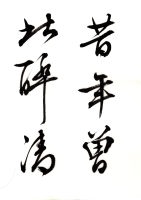 昔年曾
此醉清